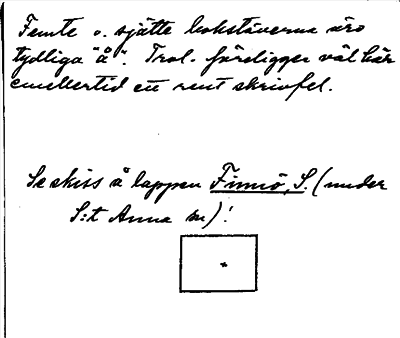 Femte o. sjätte bokstäverna äro
tydliga "å". Trol. föreligger väl här
emellertid ett rent skrivfel.
Se skiss å lappen Finnö, S. (under
S:t Anna sn)!